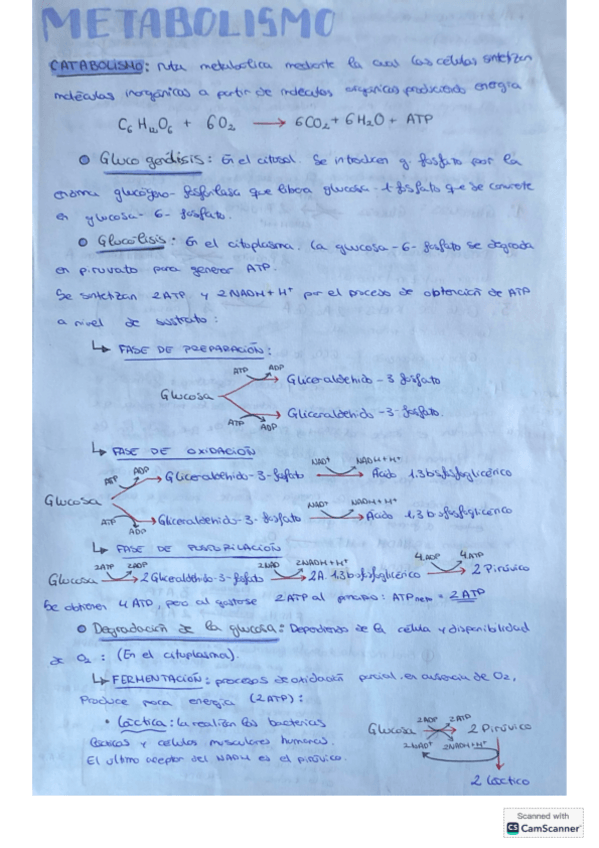 METABOLISMO
CATABOLISMO: ruta metabólica mediante la cual las células sintetizan
moléculas inorgánicas a partir de moléculas orgánicas produciendo energía
C6 H12 O6 + 6O2 → 6CO2 + 6H2O + ATP
Gluco genólisis: En el citosol. Se introduce q fosfato por la
enzima glucógeno-fosforilasa que libera glucosa-1-fosfato que se convierte
en glucosa-6-fosfato.
Glucólisis: En el citoplasma. La glucosa-6-fosfato se degrada
en piruvato para generar ATP.
Se sintetizan 2ATP y 2NADH+H+ por el proceso de obtención de ATP
a nivel de sustrato:
↳ FASE DE PREPARACIÓN:
ATP ADP
Gliceraldehido-3 fosfato
Glucosa
Gliceraldehido-3-fosfato.
ATP ADP
↳ FASE DE OXIDACIÓN
ATP ADP Gliceraldehido-3-fosfato NAD+ NADH+H+ Ácido 1,3 bifosfoglicérico
Glucosa
ATP ADP Gliceraldehido-3-fosfato NAD+ NADH+H+ Ácido 1,3 bifosfoglicérico
↳ FASE DE
2ATP 2ADP 2NAD 2NADH+H+ 4ADP 4ATP
Glucosa → 2 Gliceraldehido-3-fosfato → 2A. 1,3 bifosfoglicérico → 2 Pirúvico
Se obtienen 4 ATP, pero al gastarse 2ATP al principio: = 2 ATP
Degradación de la glucosa: Dependiendo de la célula y disponibilidad
de O2: (En el citoplasma).
↳ FERMENTACIÓN: procesos de oxidación parcial, en ausencia de O2,
Produce poca energía (2ATP):
• Láctica: la realizan las bacterias
lácticas y células musculares humanas.
El ultimo aceptor del NADH es el pirúvico.
2ADP 2ATP
Glucosa → 2 Pirúvico
2NAD+ 2NADH+H+
2 Láctico
Scanned with
CS CamScanner